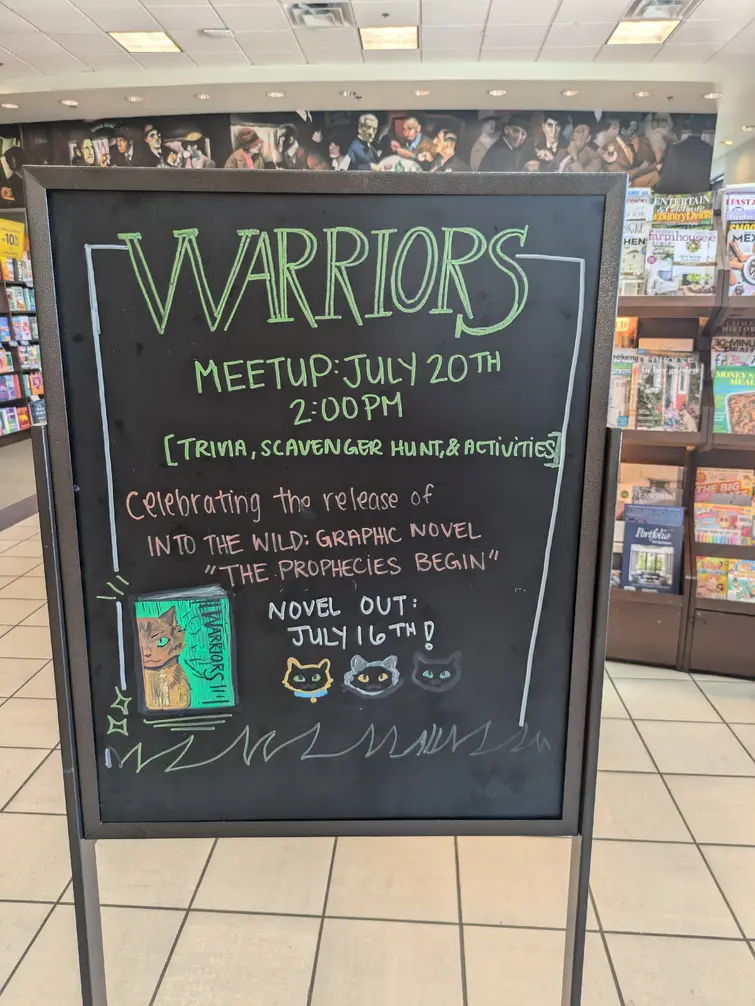 WARRIORS
MEETUP: JULY 20TH
2:00PM
[TRIVIA, SCAVENGER HUNT, & ACTIVITIES]
Celebrating the release of
INTO THE WILD: GRAPHIC NOVEL
"THE PROPHECIES BEGIN"
NOVEL OUT:
JULY 16TH!
WARRIORS
-10%
ENTERTAIN
& Celebrate
Country Living
farmhouse
Portfolio
THE BIG